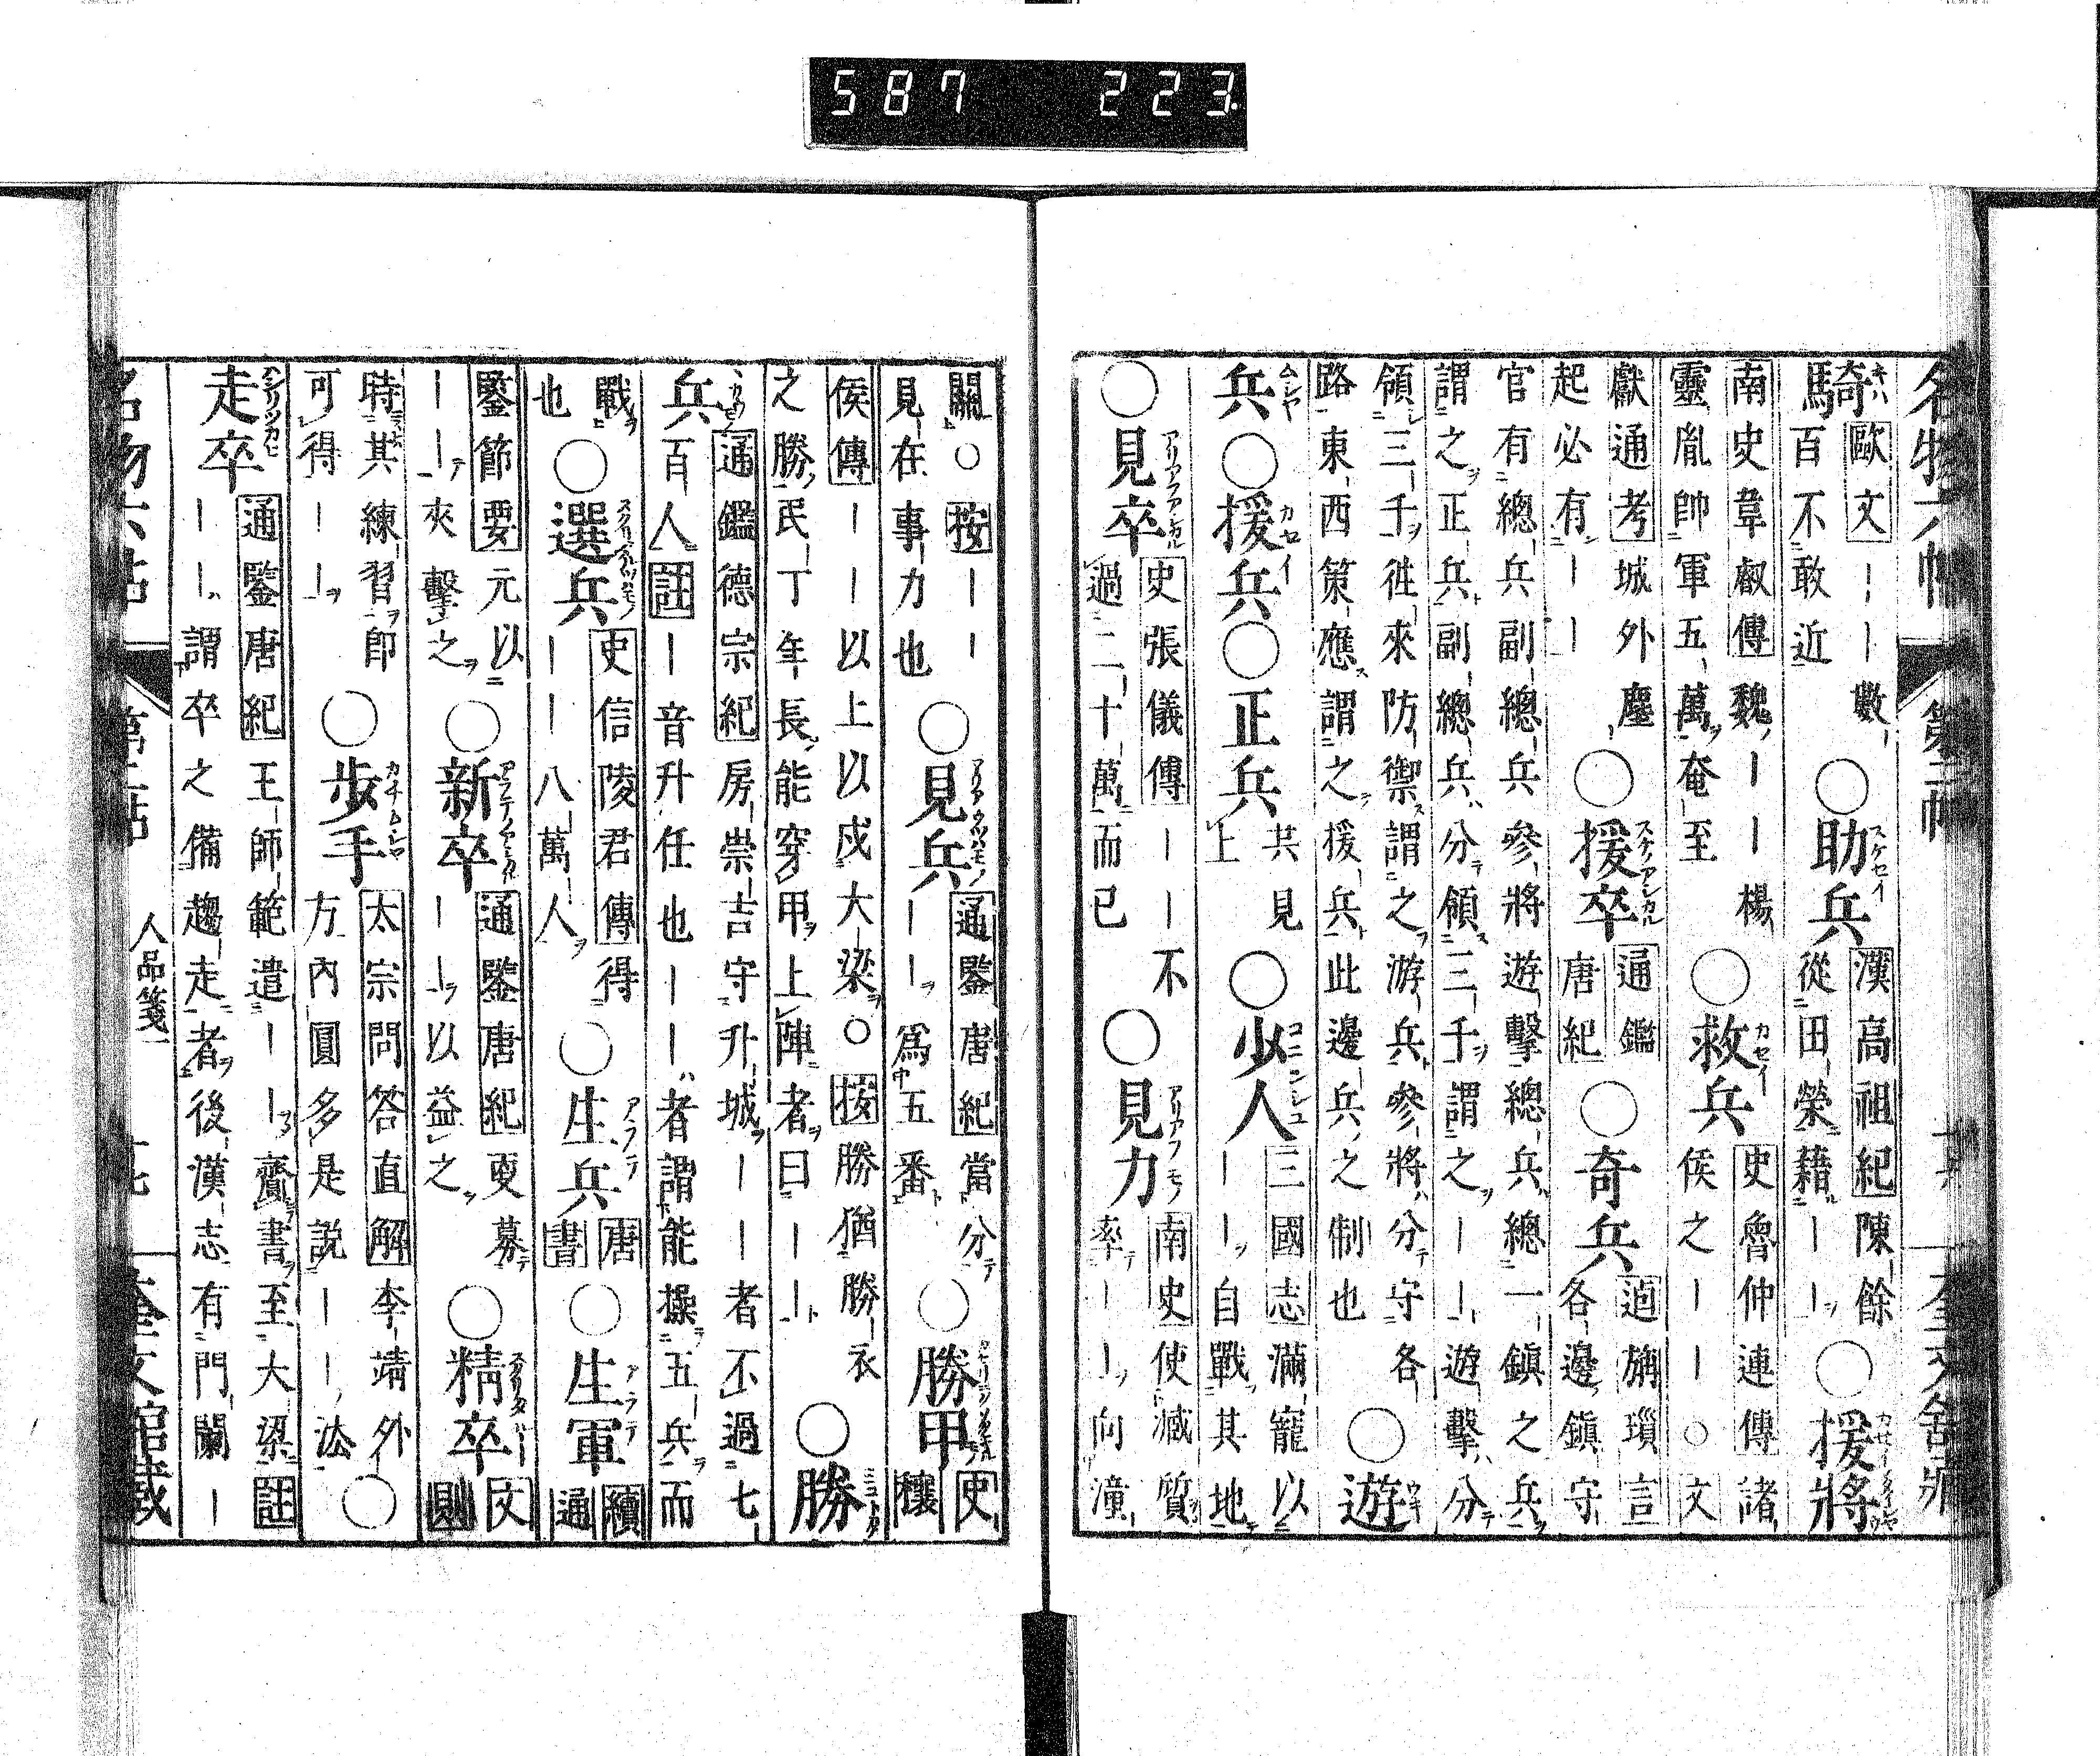 名物六帖 第二帖 十六 奎文舘藏
騎 歐文――數百不敢近 ○助兵 漢高祖紀陳餘從田榮藉―― ○援將
南史韋叡傳魏――楊靈胤帥軍五萬奄至 ○救兵 史魯仲連傳諸侯之――○文
獻通考城外塵起必有―― ○援卒 通鑑唐紀 ○奇兵 逌旃瑣言各邊鎮守
官有總兵副總兵參將遊擊總兵總一鎮之兵謂之正兵副總兵分領三千謂之――遊擊分
領三千徃來防禦謂之游兵參將分守各路東西策應謂之援兵此邊兵之制也 ○遊
兵 ○援兵 ○正兵 共見上 ○少人 三國志滿寵以――自戰其地
○見卒 史張儀傳――不過二十萬而已 ○見力 南史使臧質率――向潼
關○按――見在事力也 ○見兵 通鑒唐紀當分――爲五番 ○勝甲 史穰
侯傳――以上以戍大梁○按勝猶勝衣之勝民丁年長能穿甲上陣者曰―― ○勝
兵 通鑑德宗紀房崇吉守升城――者不過七百人註―音升任也――者謂能操五兵而
戰也 ○選兵 史信陵君傳得――八萬人 ○生兵 唐書 ○生軍 續通
鑒節要元以――夾擊之 ○新卒 通鑒唐紀更募――以益之 ○精卒 文則
時其練習即可得―― ○步手 太宗問答直解李靖外方內圓多是説――法 ○
走卒 通鑒唐紀王師範遣――齎書至大梁註――謂卒之備趨走者後漢志有門闌―
名物六帖 第二帖 人品箋一 十七 奎文舘藏
587 223